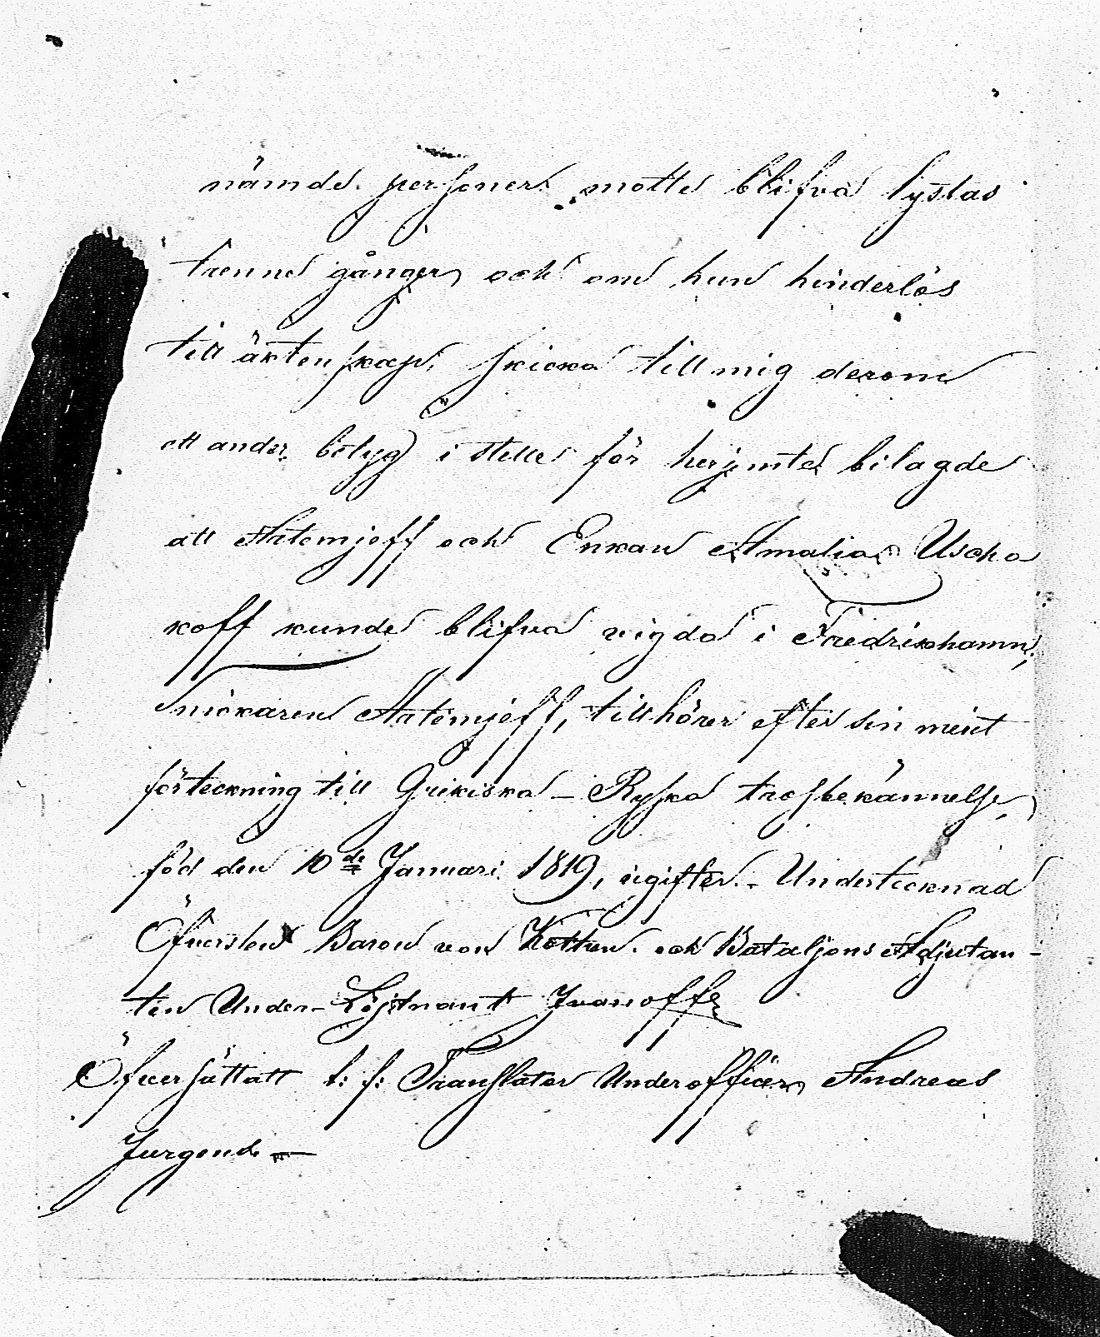 nämde personer motte blifva lystas
trenne gånger och om hun hinderlös
till äktenskap, skicka till mig derom
ett ander betyg i stelle för herjemte bilagde
att Artemjeff och Enkan Amalia Uscha
koff kunde blifva vigda i Fredrikshamn,
Snickaren Artemjeff, tillhörer efter sin merit
förteckning till Grekiska - Ryska trosbekännelse,
född den 10de Januari 1819, ugifter. - Undertecknad
Öfversten Baron von Kothen och Bataljons Adjutan-
ten Under-Löjtnant Ivanoff
Öfversättatt t: f: Translator Underofficer Andreas
Jurgens